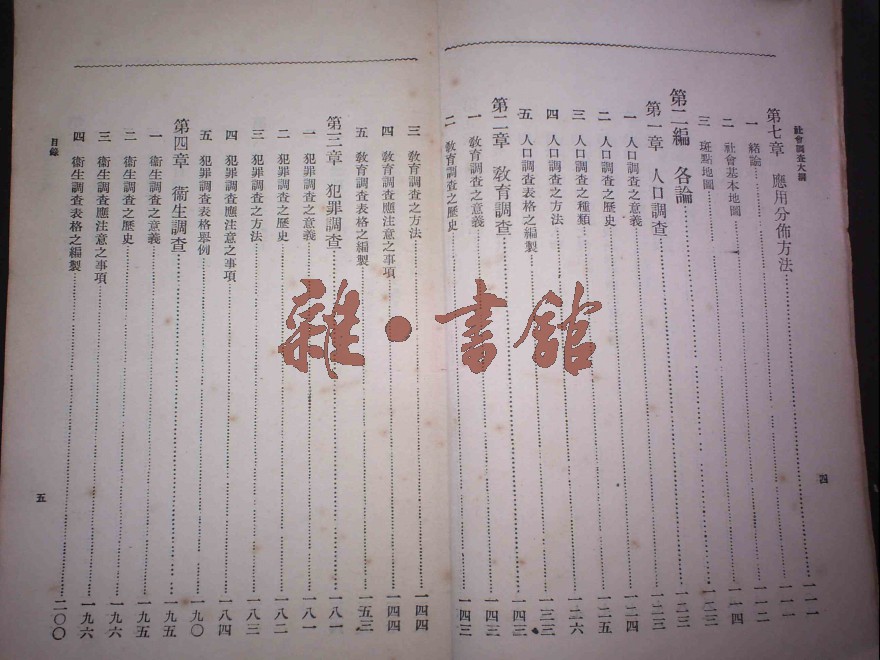 社會調查大綱
四
第七章 應用分佈方法……一一一
一 緒論……一一一
二 社會基本地圖……一一二
三 斑點地圖……一一四
第二編 各論……一二三
第一章 人口調查……一二三
一 人口調查之意義……一二三
二 人口調查之歷史……一二四
三 人口調查之種類……一二五
四 人口調查之方法……一二六
五 人口調查表格之編製……一三三
第二章 教育調查……一四三
一 教育調查之意義……一四三
二 教育調查之歷史……一四三
三 教育調查之方法……一四四
四 教育調查應注意之事項……一四四
五 教育調查表格之編製……一五三
第三章 犯罪調查……一八一
一 犯罪調查之意義……一八一
二 犯罪調查之歷史……一八二
三 犯罪調查之方法……一八三
四 犯罪調查應注意之事項……一八四
五 犯罪調查表格舉例……一九〇
第四章 衞生調查……一九五
一 衞生調查之意義……一九五
二 衞生調查之歷史……一九六
三 衞生調查應注意之事項……一九六
四 衞生調查表格之編製……二〇〇
目錄
五
雜·書館